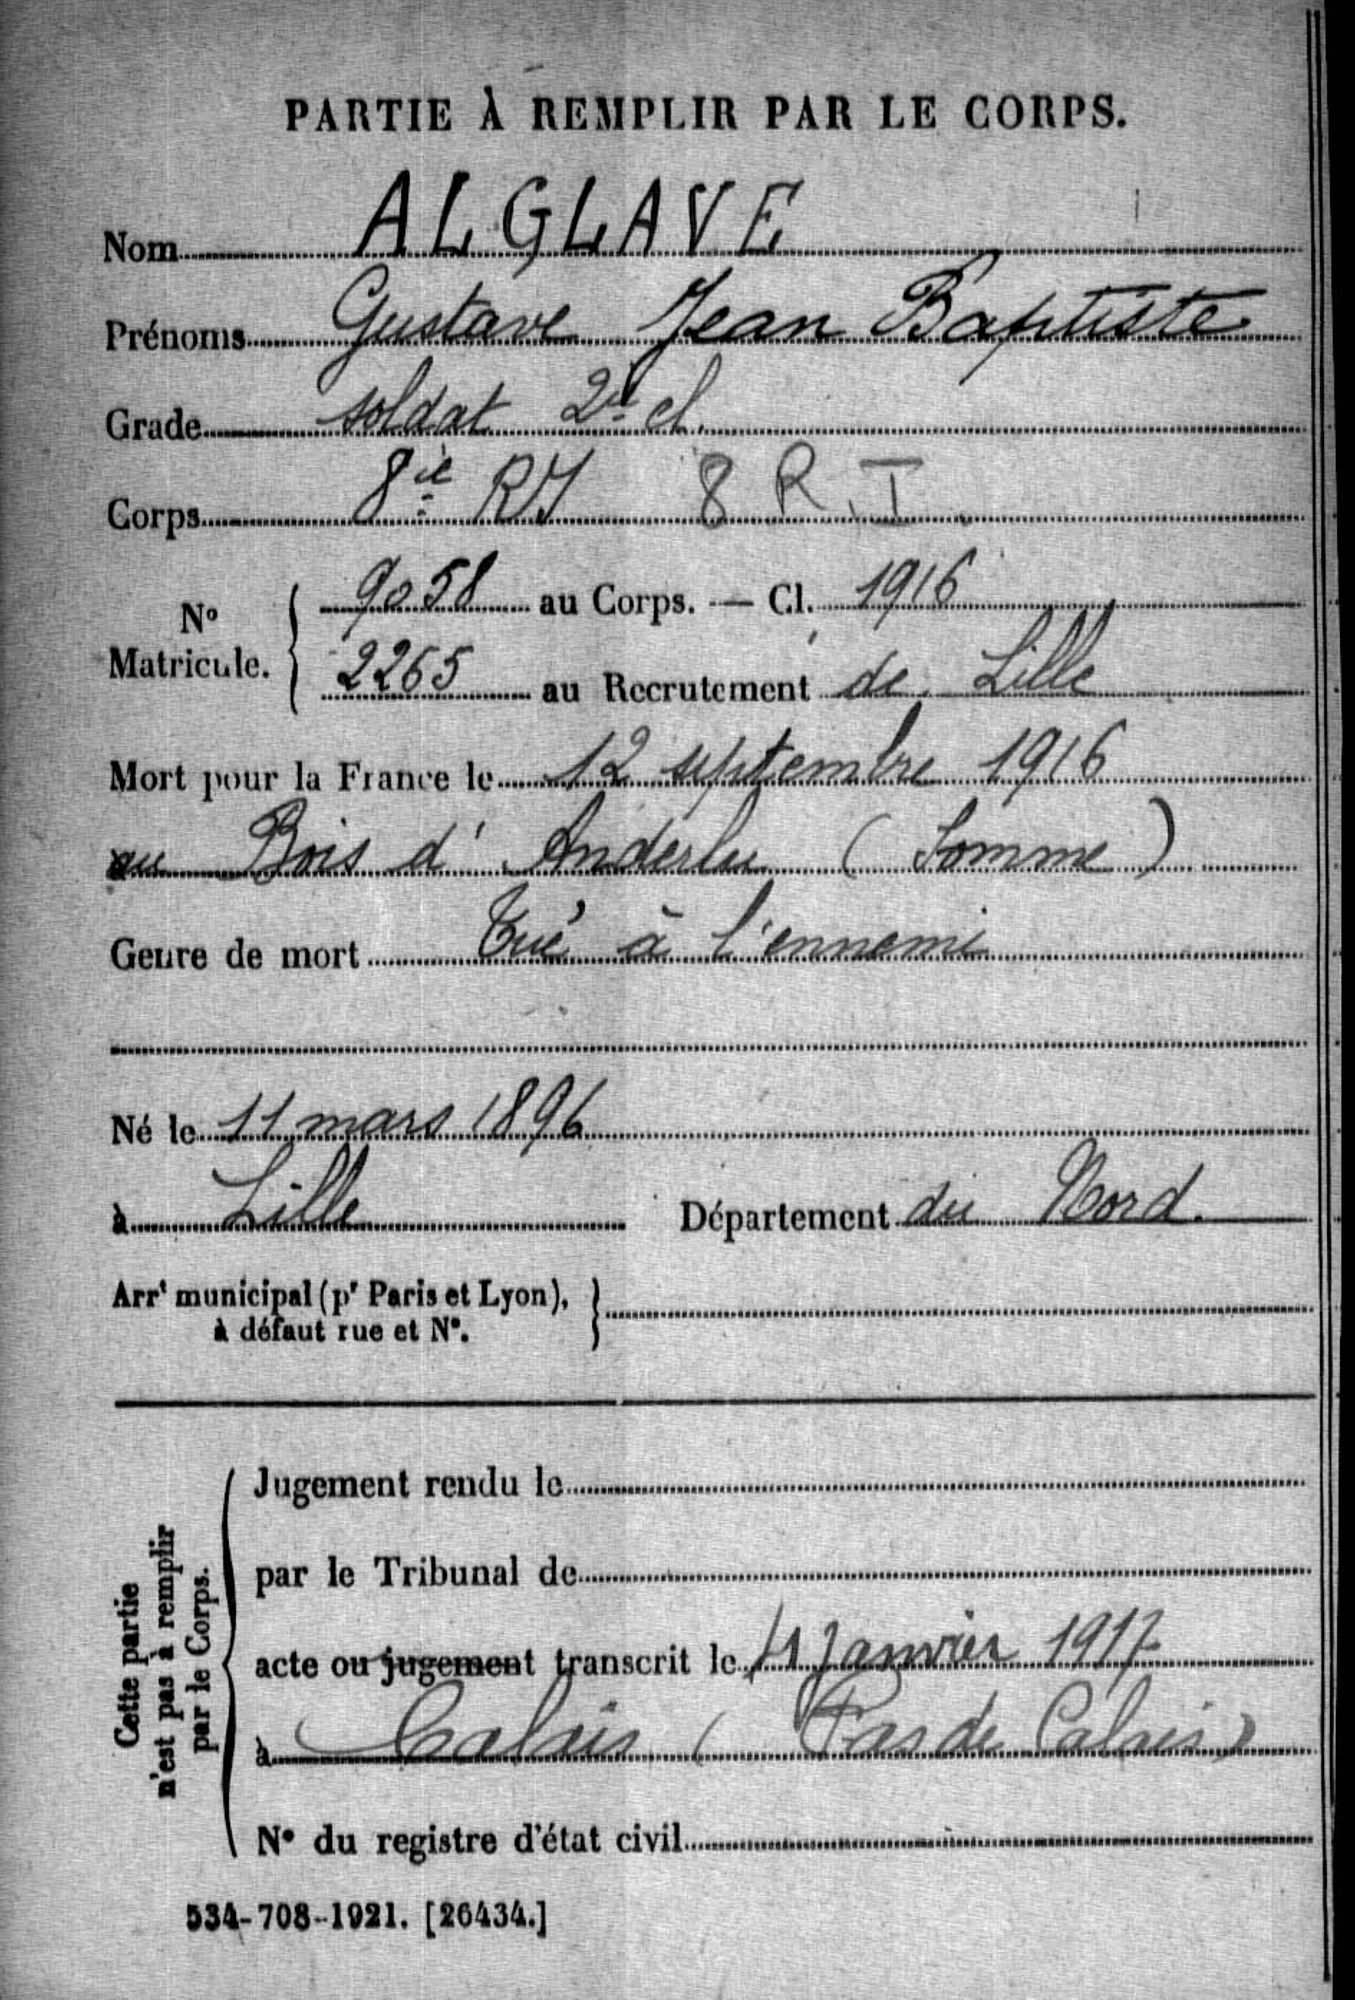 PARTIE À REMPLIR PAR LE CORPS.
Nom ALGLAVE
Prénoms Gustave Jean Baptiste
Grade soldat 2e cl.
Corps 8ie RI 8 R.I.
No Matricule. { 9058 au Corps. — Cl. 1916
2265 au Recrutement de Lille
Mort pour la France le 12 septembre 1916
au Bois d'Anderlu (Somme)
Genre de mort Tué à l'ennemi
Né le 11 mars 1896
à Lille Département du Nord.
Arrt municipal (pr Paris et Lyon), }
à défaut rue et No.
Cette partie
n'est pas à remplir
par le Corps.
Jugement rendu le
par le Tribunal de
acte ou jugement transcrit le janvier 1917
à Calais (Pas de Calais)
No du registre d'état civil
534-708-1921. [26434.]